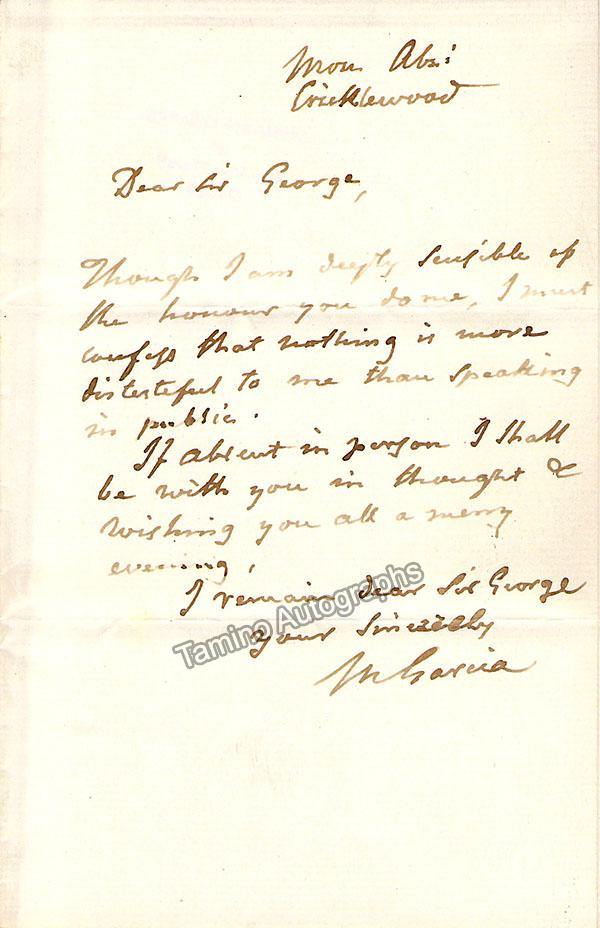 Mon Abri
Cricklewood
Dear Sir George,
Though I am deeply sensible of
the honour you do me, I must
confess that nothing is more
distesteful to me than speaking
in public.
If absent in person I shall
be with you in thought &
wishing you all a merry
evening,
I remain dear Sir George
your sincerely
M Garcia
Tamino Autographs